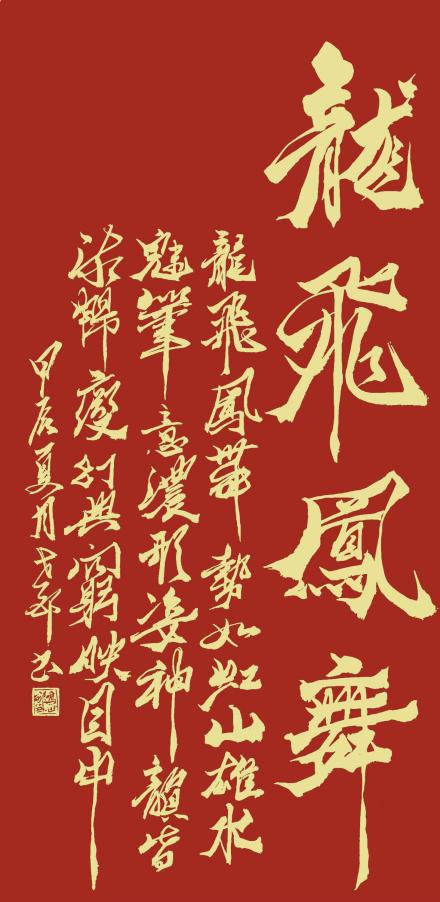 龍飛鳳舞
龍飛鳳舞勢如虹山雄水
魅筆意濃形姿神韻皆
活神變幻無窮映目中
甲辰夏月